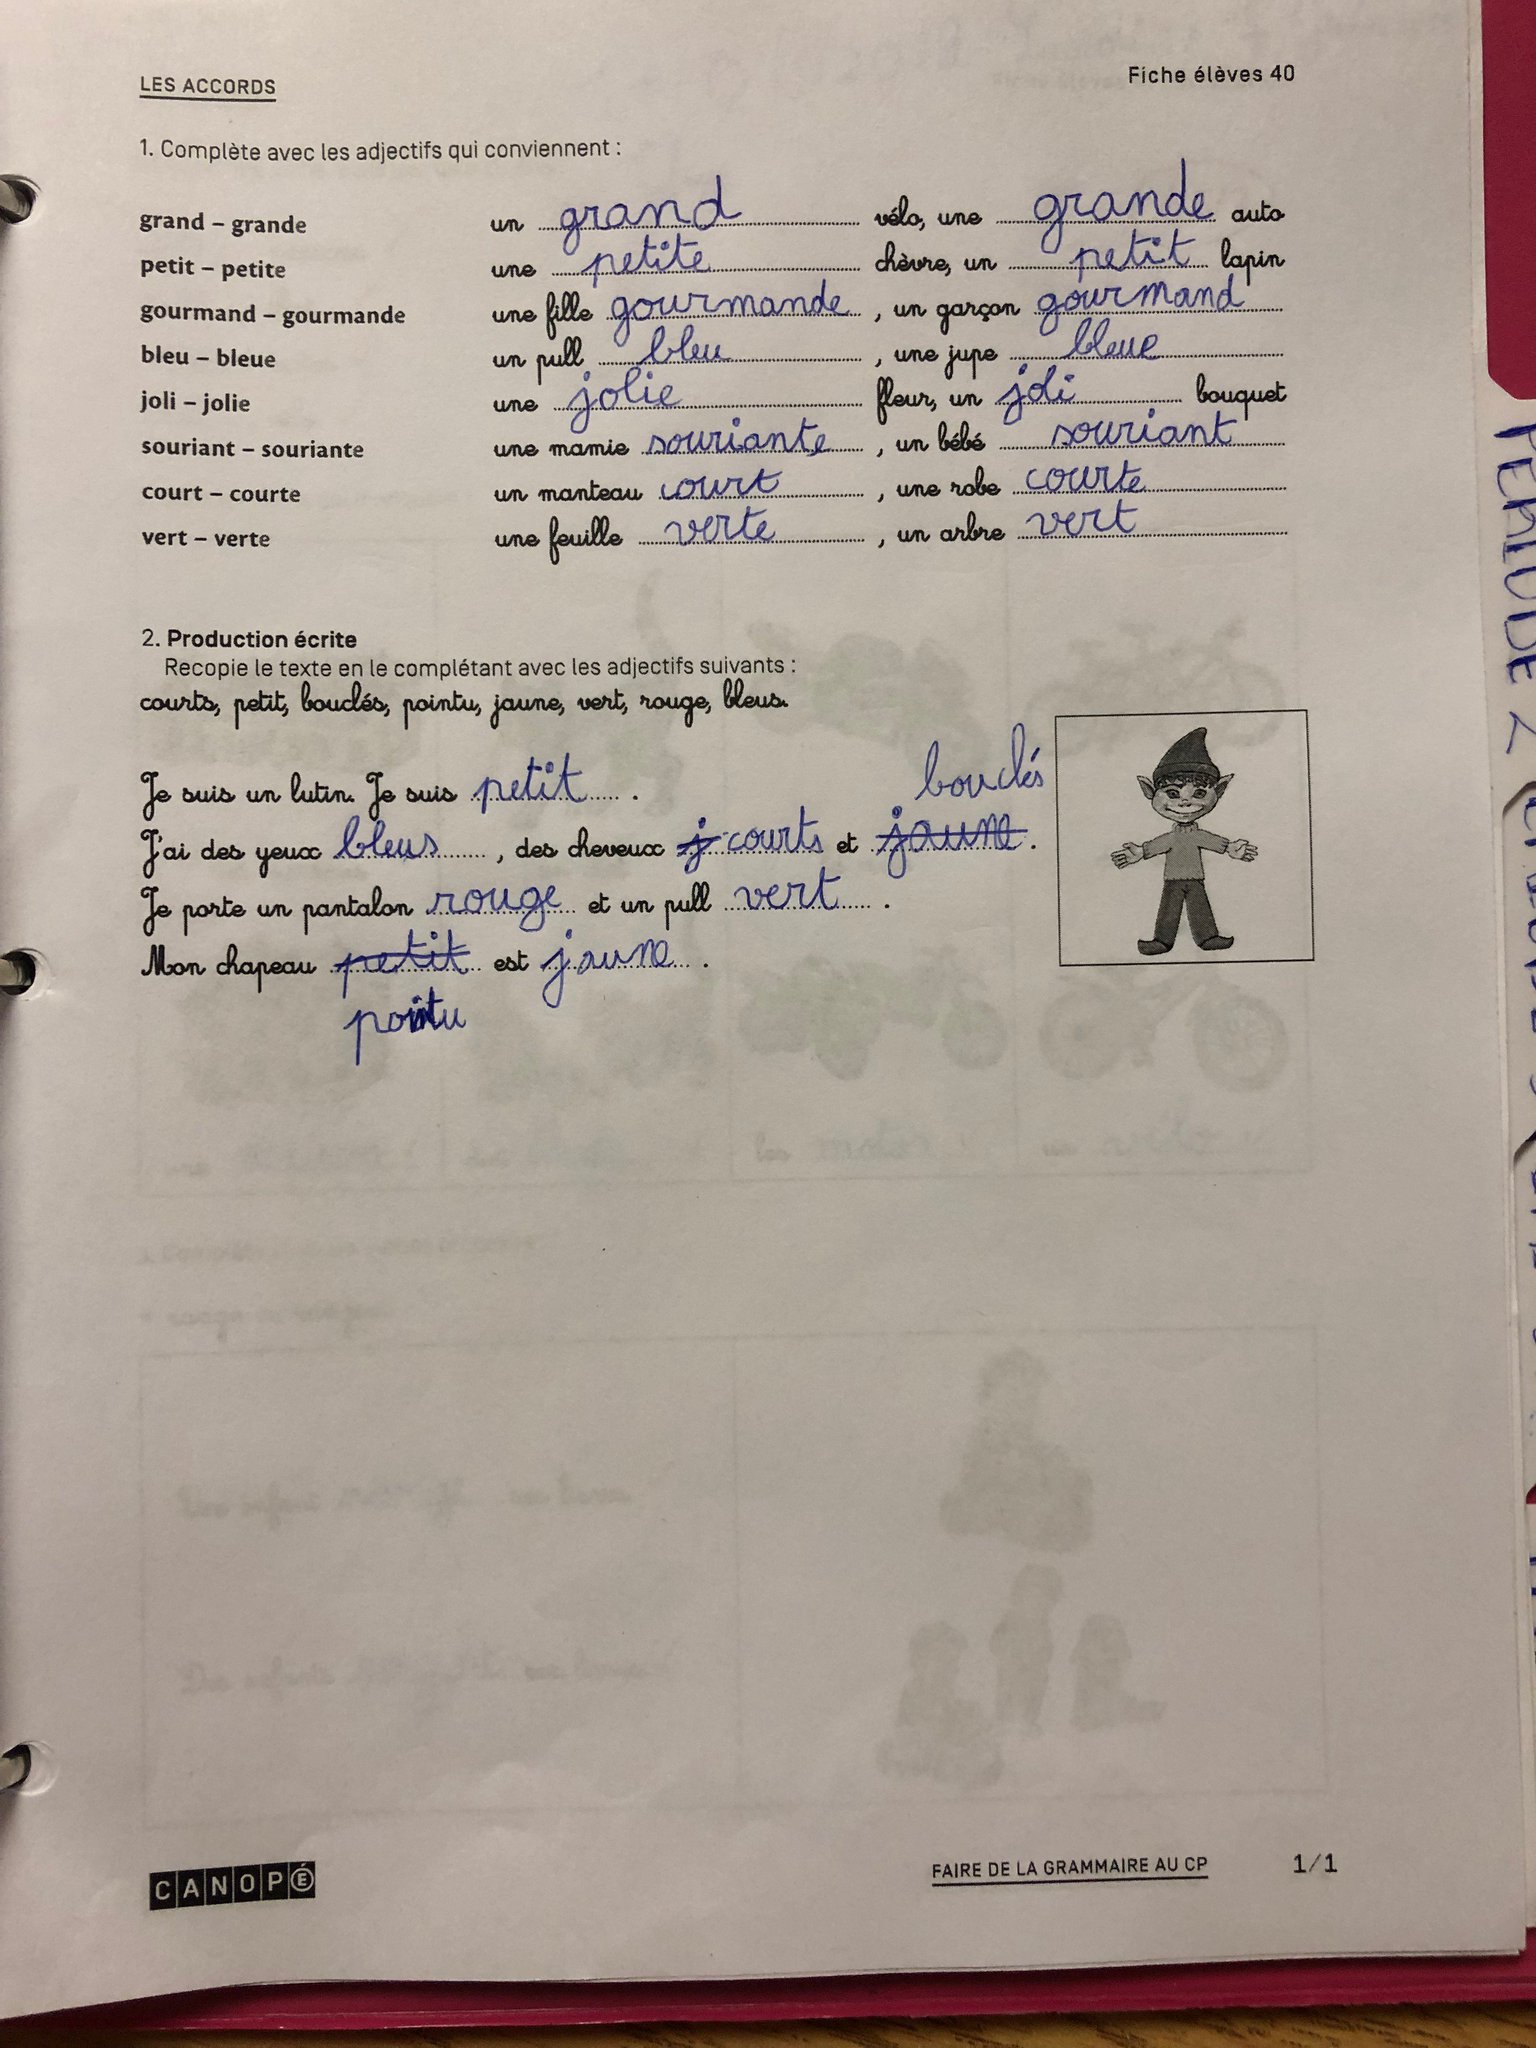 LES ACCORDS
Fiche élèves 40
1. Complète avec les adjectifs qui conviennent :
grand – grande un grand vélo, une grande auto
petit – petite une petite chèvre, un petit lapin
gourmand – gourmande une fille gourmande, un garçon gourmand
bleu – bleue un pull bleu, une jupe bleue
joli – jolie une jolie fleur, un joli bouquet
souriant – souriante une mamie souriante, un bébé souriant
court – courte un manteau court, une robe courte
vert – verte une feuille verte, un arbre vert
2. Production écrite
Recopie le texte en le complétant avec les adjectifs suivants :
courts, petit, bouclés, pointu, jaune, vert, rouge, bleus.
bouclés
Je suis un lutin. Je suis petit.
J'ai des yeux bleus, des cheveux j courts et jaune.
Je porte un pantalon rouge et un pull vert.
Mon chapeau petit est jaune.
pointu
CANOPÉ
FAIRE DE LA GRAMMAIRE AU CP
1/1
PERIODE 2